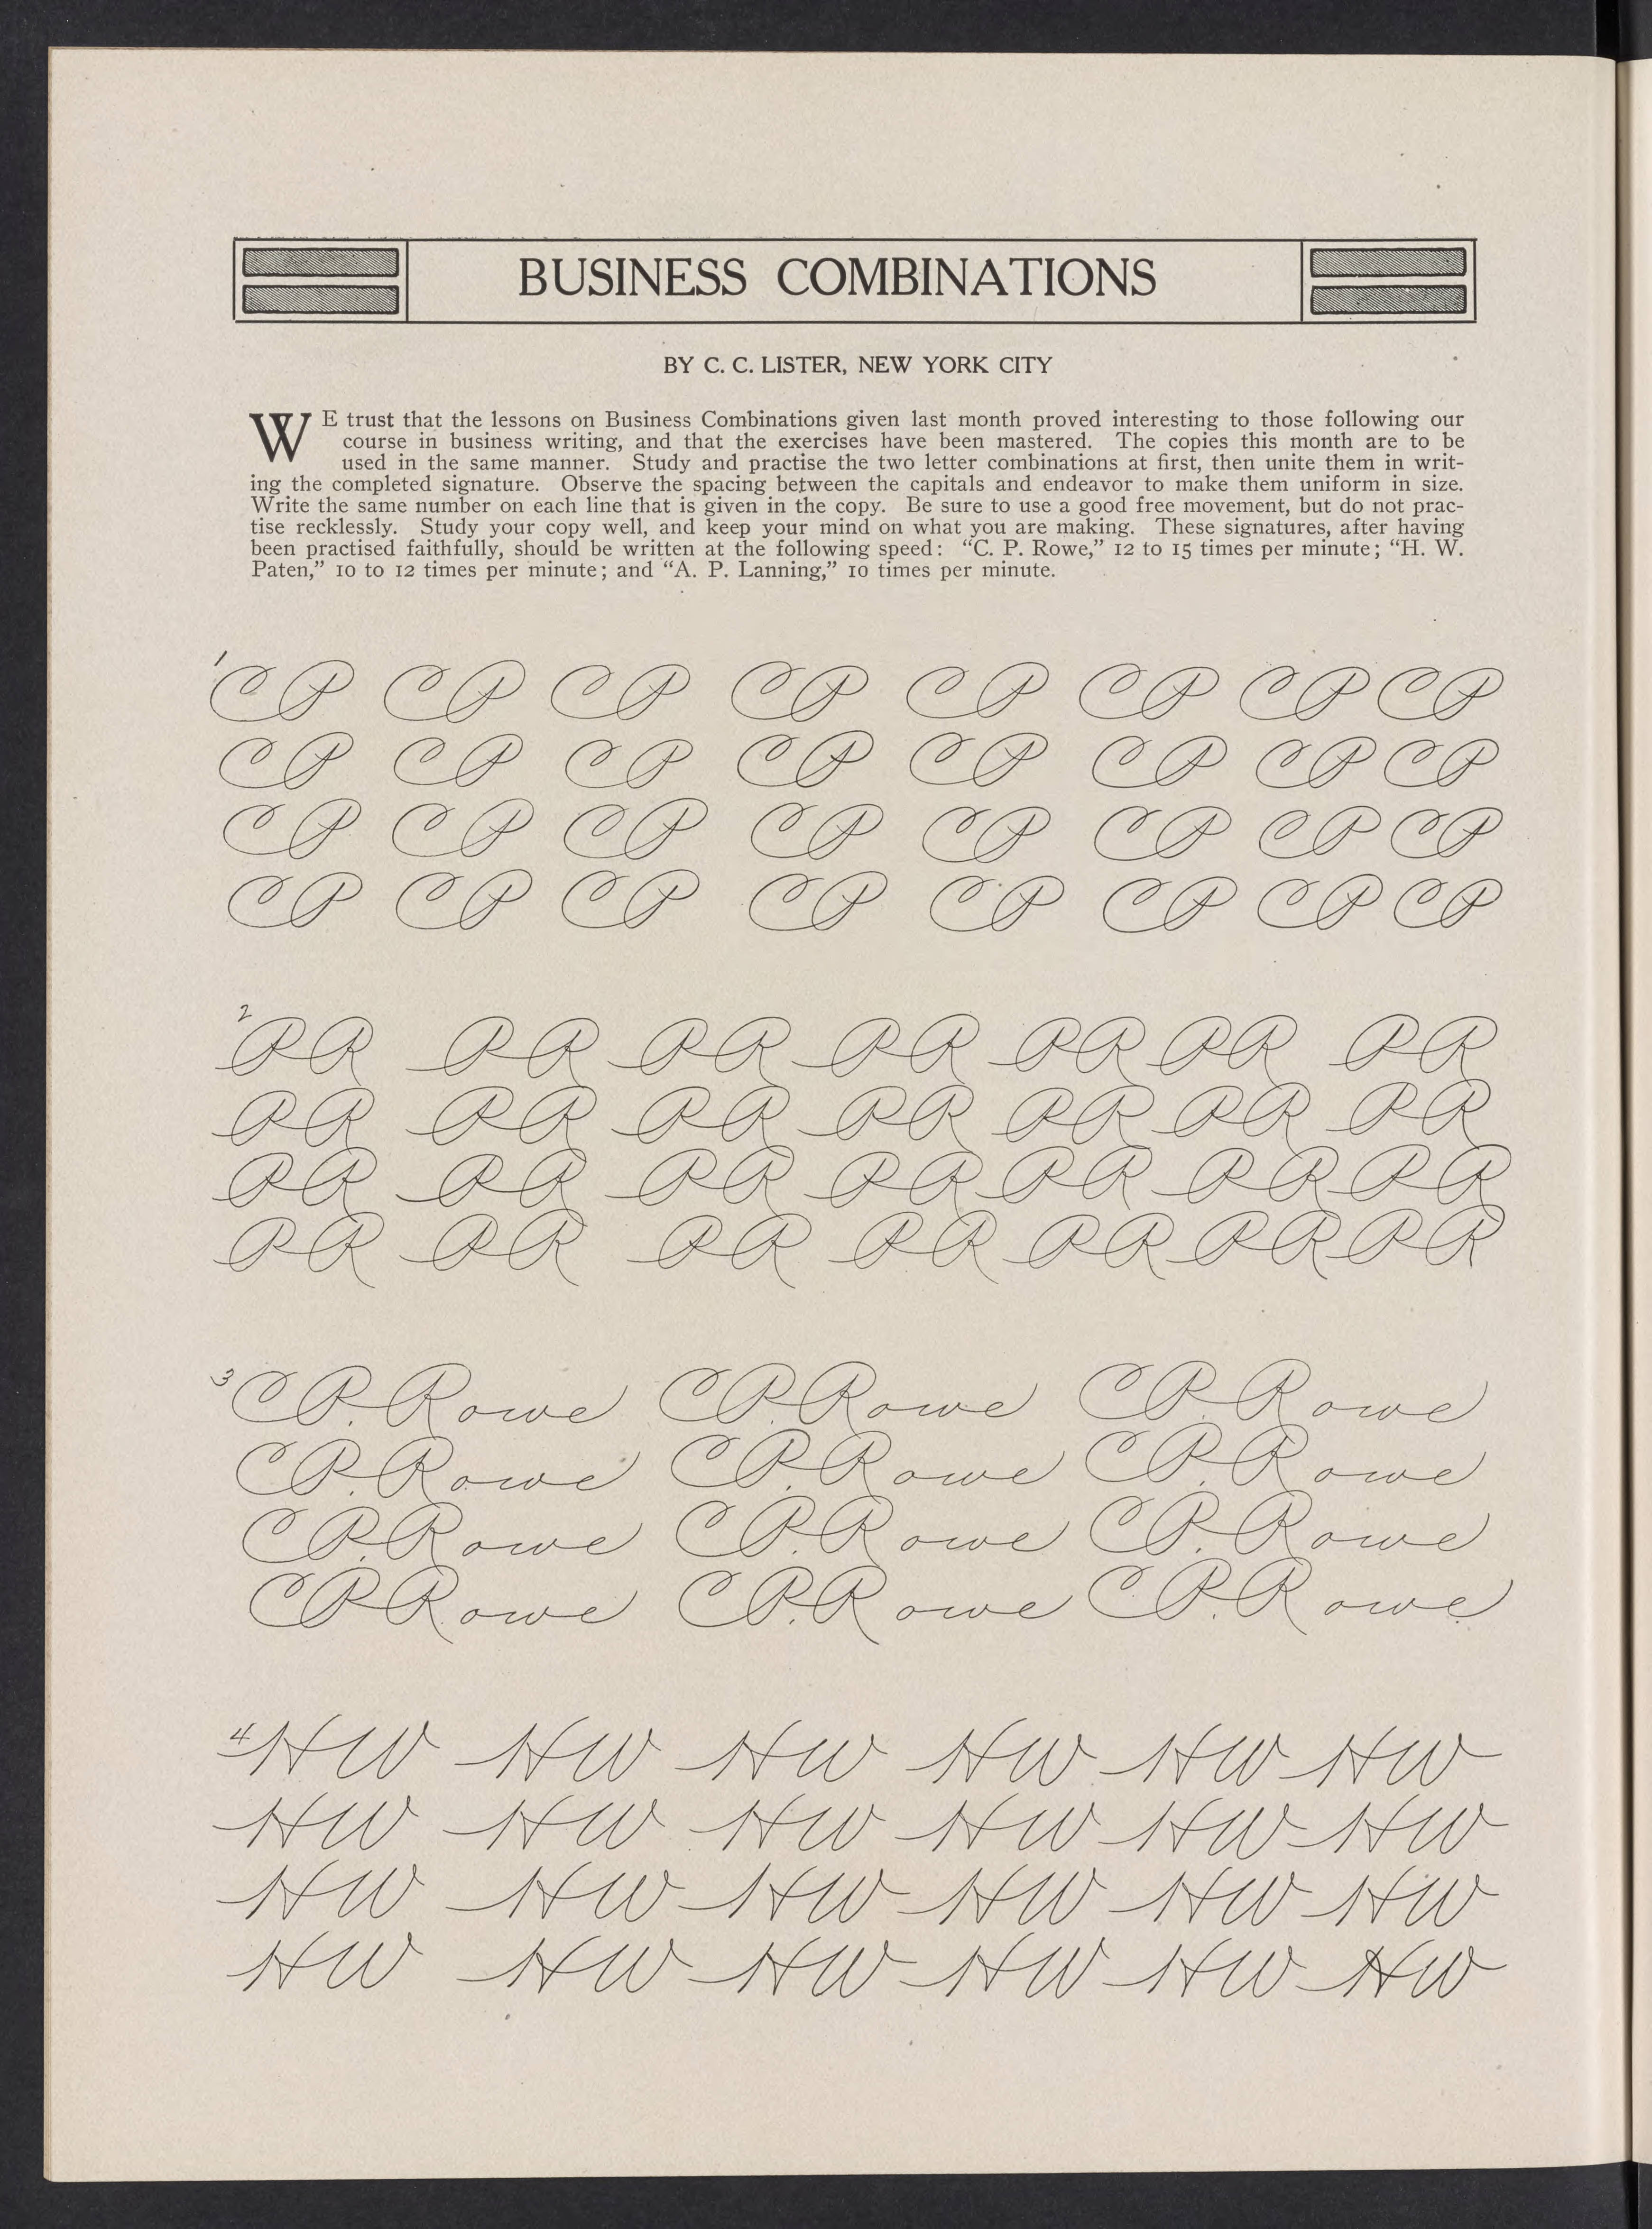 BUSINESS COMBINATIONS
BY C. C. LISTER, NEW YORK CITY
WE trust that the lessons on Business Combinations given last month proved interesting to those following our
course in business writing, and that the exercises have been mastered. The copies this month are to be
used in the same manner. Study and practise the two letter combinations at first, then unite them in writ-
ing the completed signature. Observe the spacing between the capitals and endeavor to make them uniform in size.
Write the same number on each line that is given in the copy. Be sure to use a good free movement, but do not prac-
tise recklessly. Study your copy well, and keep your mind on what you are making. These signatures, after having
been practised faithfully, should be written at the following speed: “C. P. Rowe,” 12 to 15 times per minute; “H. W.
Paten,” 10 to 12 times per minute; and “A. P. Lanning,” 10 times per minute.
1 CP CP CP CP CP CP CP CP
CP CP CP CP CP CP CP CP
CP CP CP CP CP CP CP CP
CP CP CP CP CP CP CP CP
2 PR PR PR PR PR PR PR
PR PR PR PR PR PR PR
PR PR PR PR PR PR PR
PR PR PR PR PR PR PR
3 C.P. Rowe C.P. Rowe C.P. Rowe
C.P. Rowe C.P. Rowe C.P. Rowe
C.P. Rowe C.P. Rowe C.P. Rowe
C.P. Rowe C.P. Rowe C.P. Rowe
4 HW HW HW HW HW HW
HW HW HW HW HW HW
HW HW HW HW HW HW
HW HW HW HW HW HW